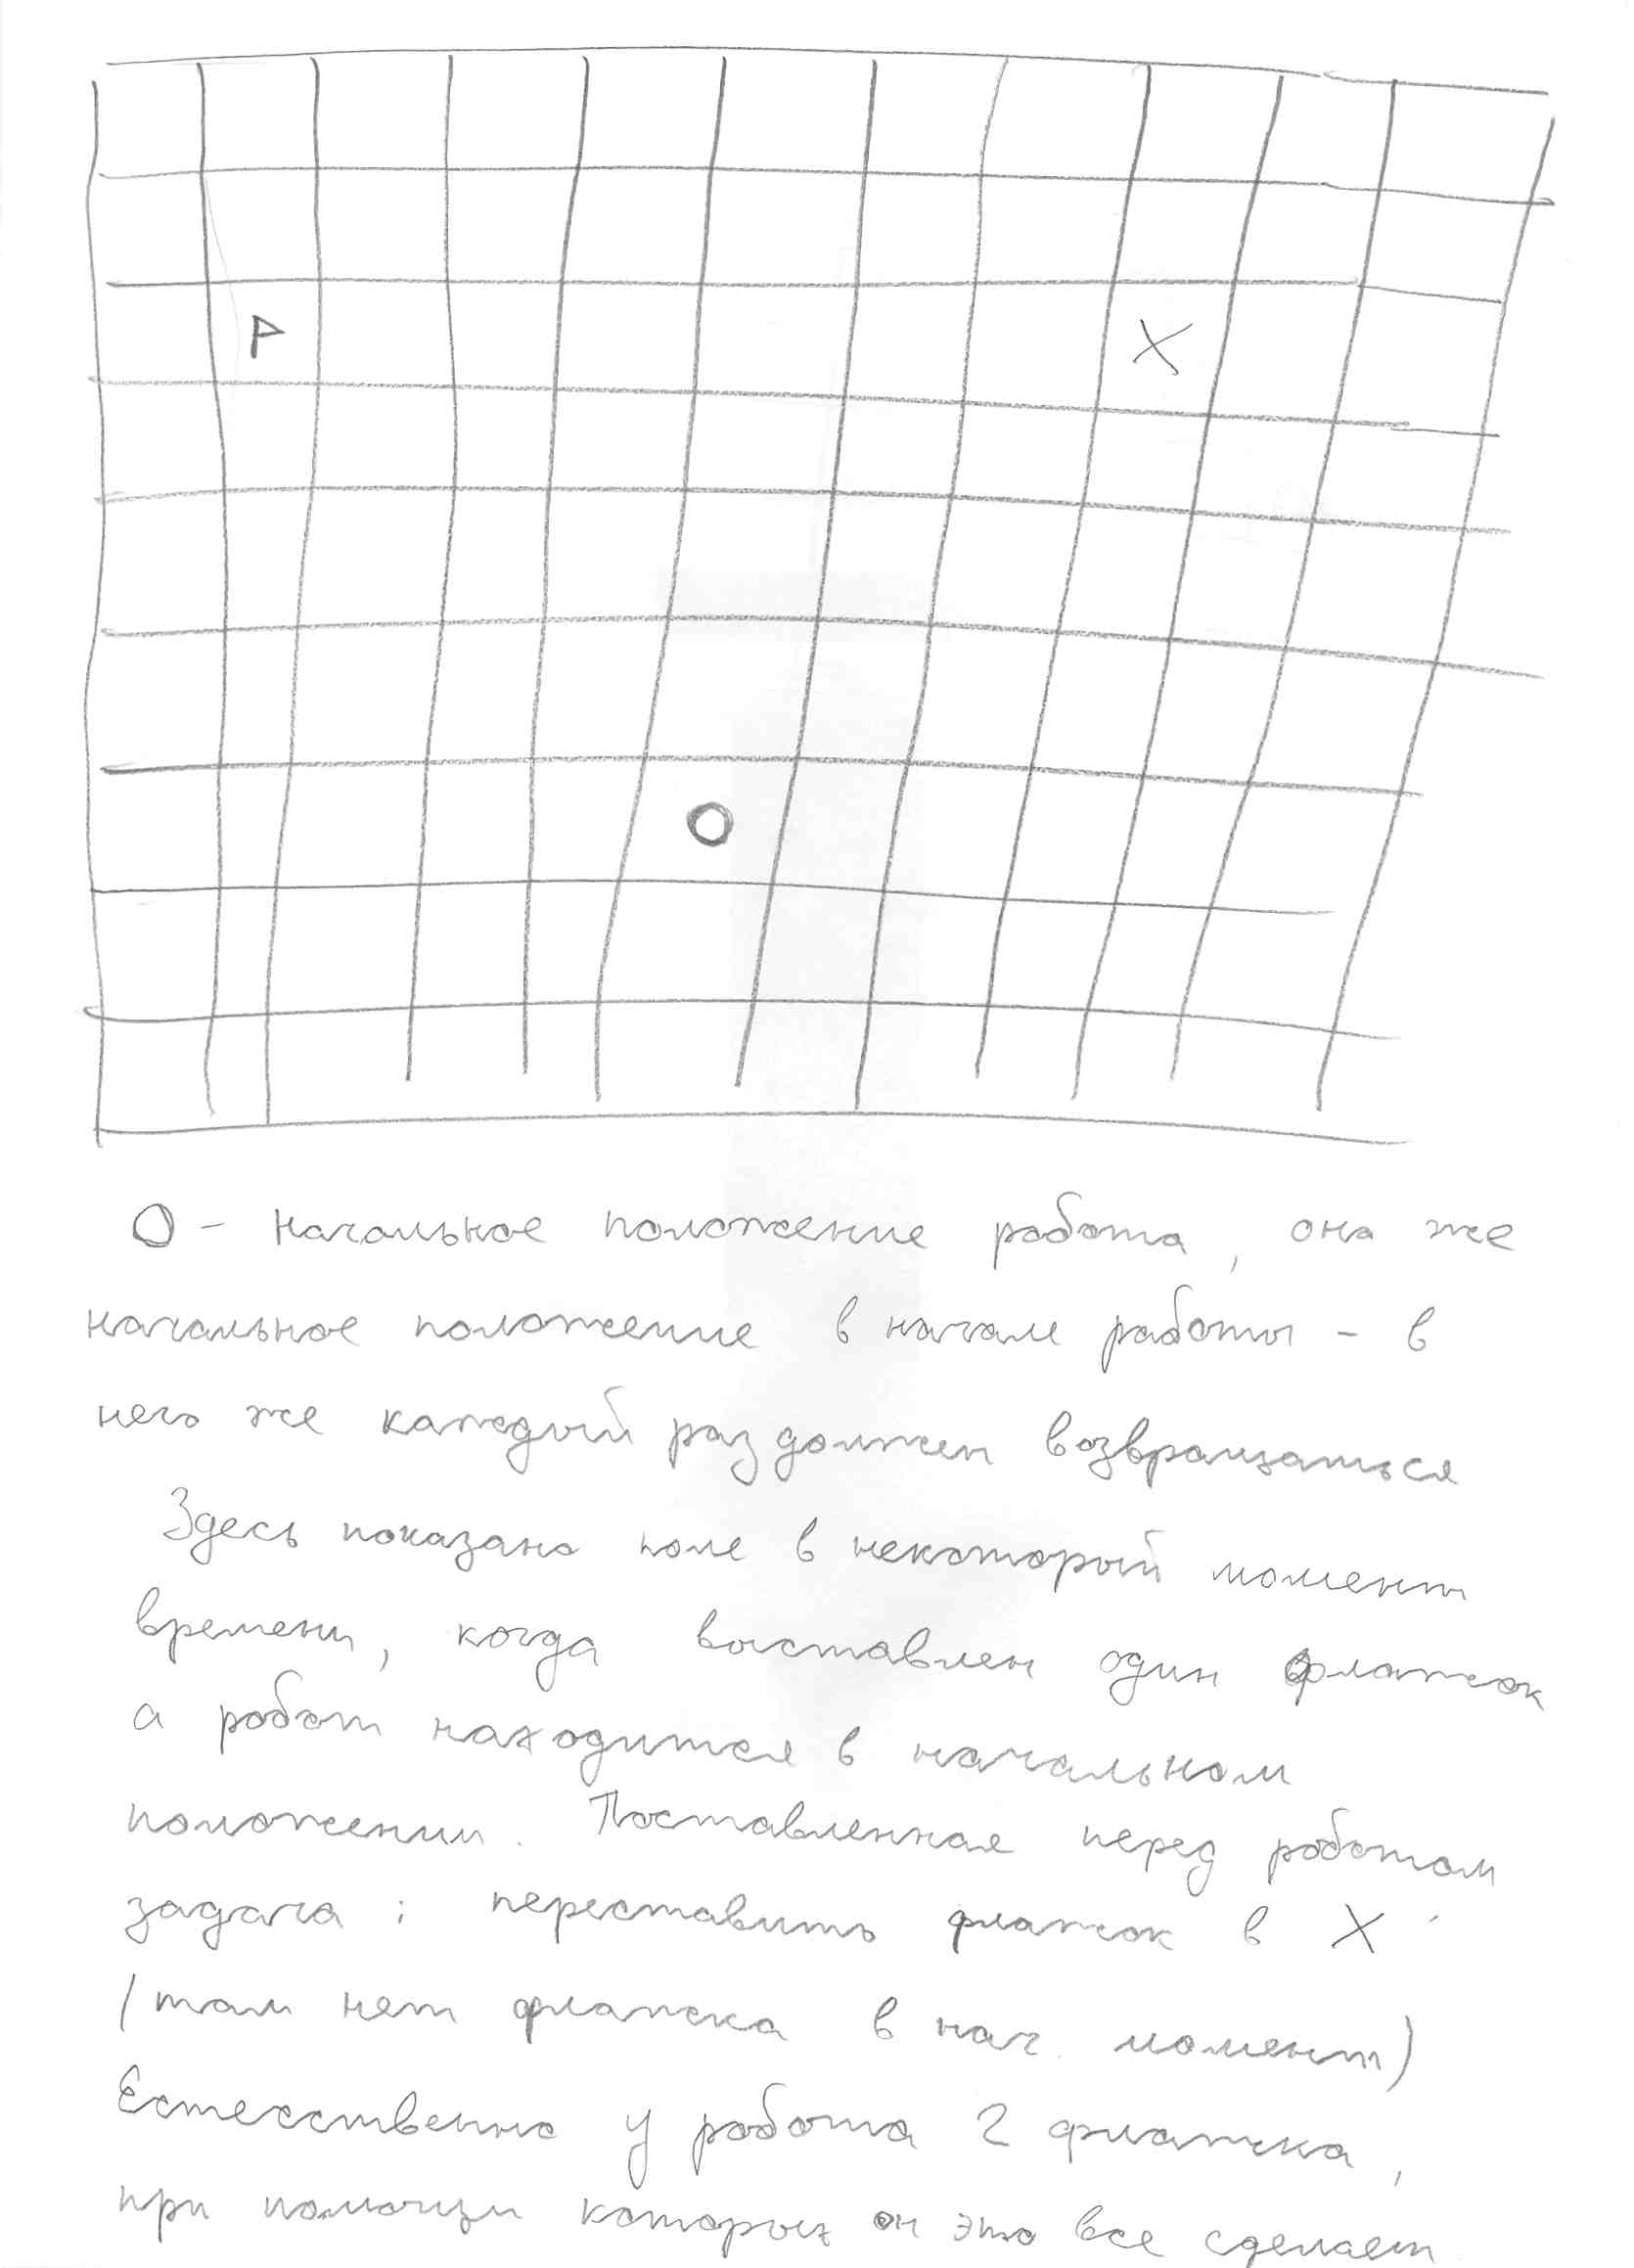 P
X
O
O - начальное положение робота, оно же
начальное положение в начале работы - в
него же каждый раз должен возвращаться
Здесь показано поле в некоторый момент
времени, когда выставлен один флажок
а робот находится в начальном
положении. Поставленная перед роботом
задача: переставить флажок в X
(там нет флажка в нач. момент)
Естественно у робота 2 флажка,
при помощи которых он это все сделает